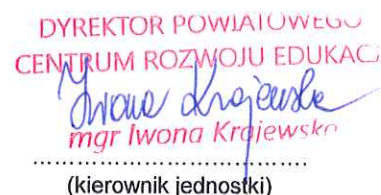 DYREKTOR POWIATOWEGO
CENTRUM ROZWOJU EDUKACJ
Iwona Krajewska
mgr Iwona Krajewska
(kierownik jednostki)